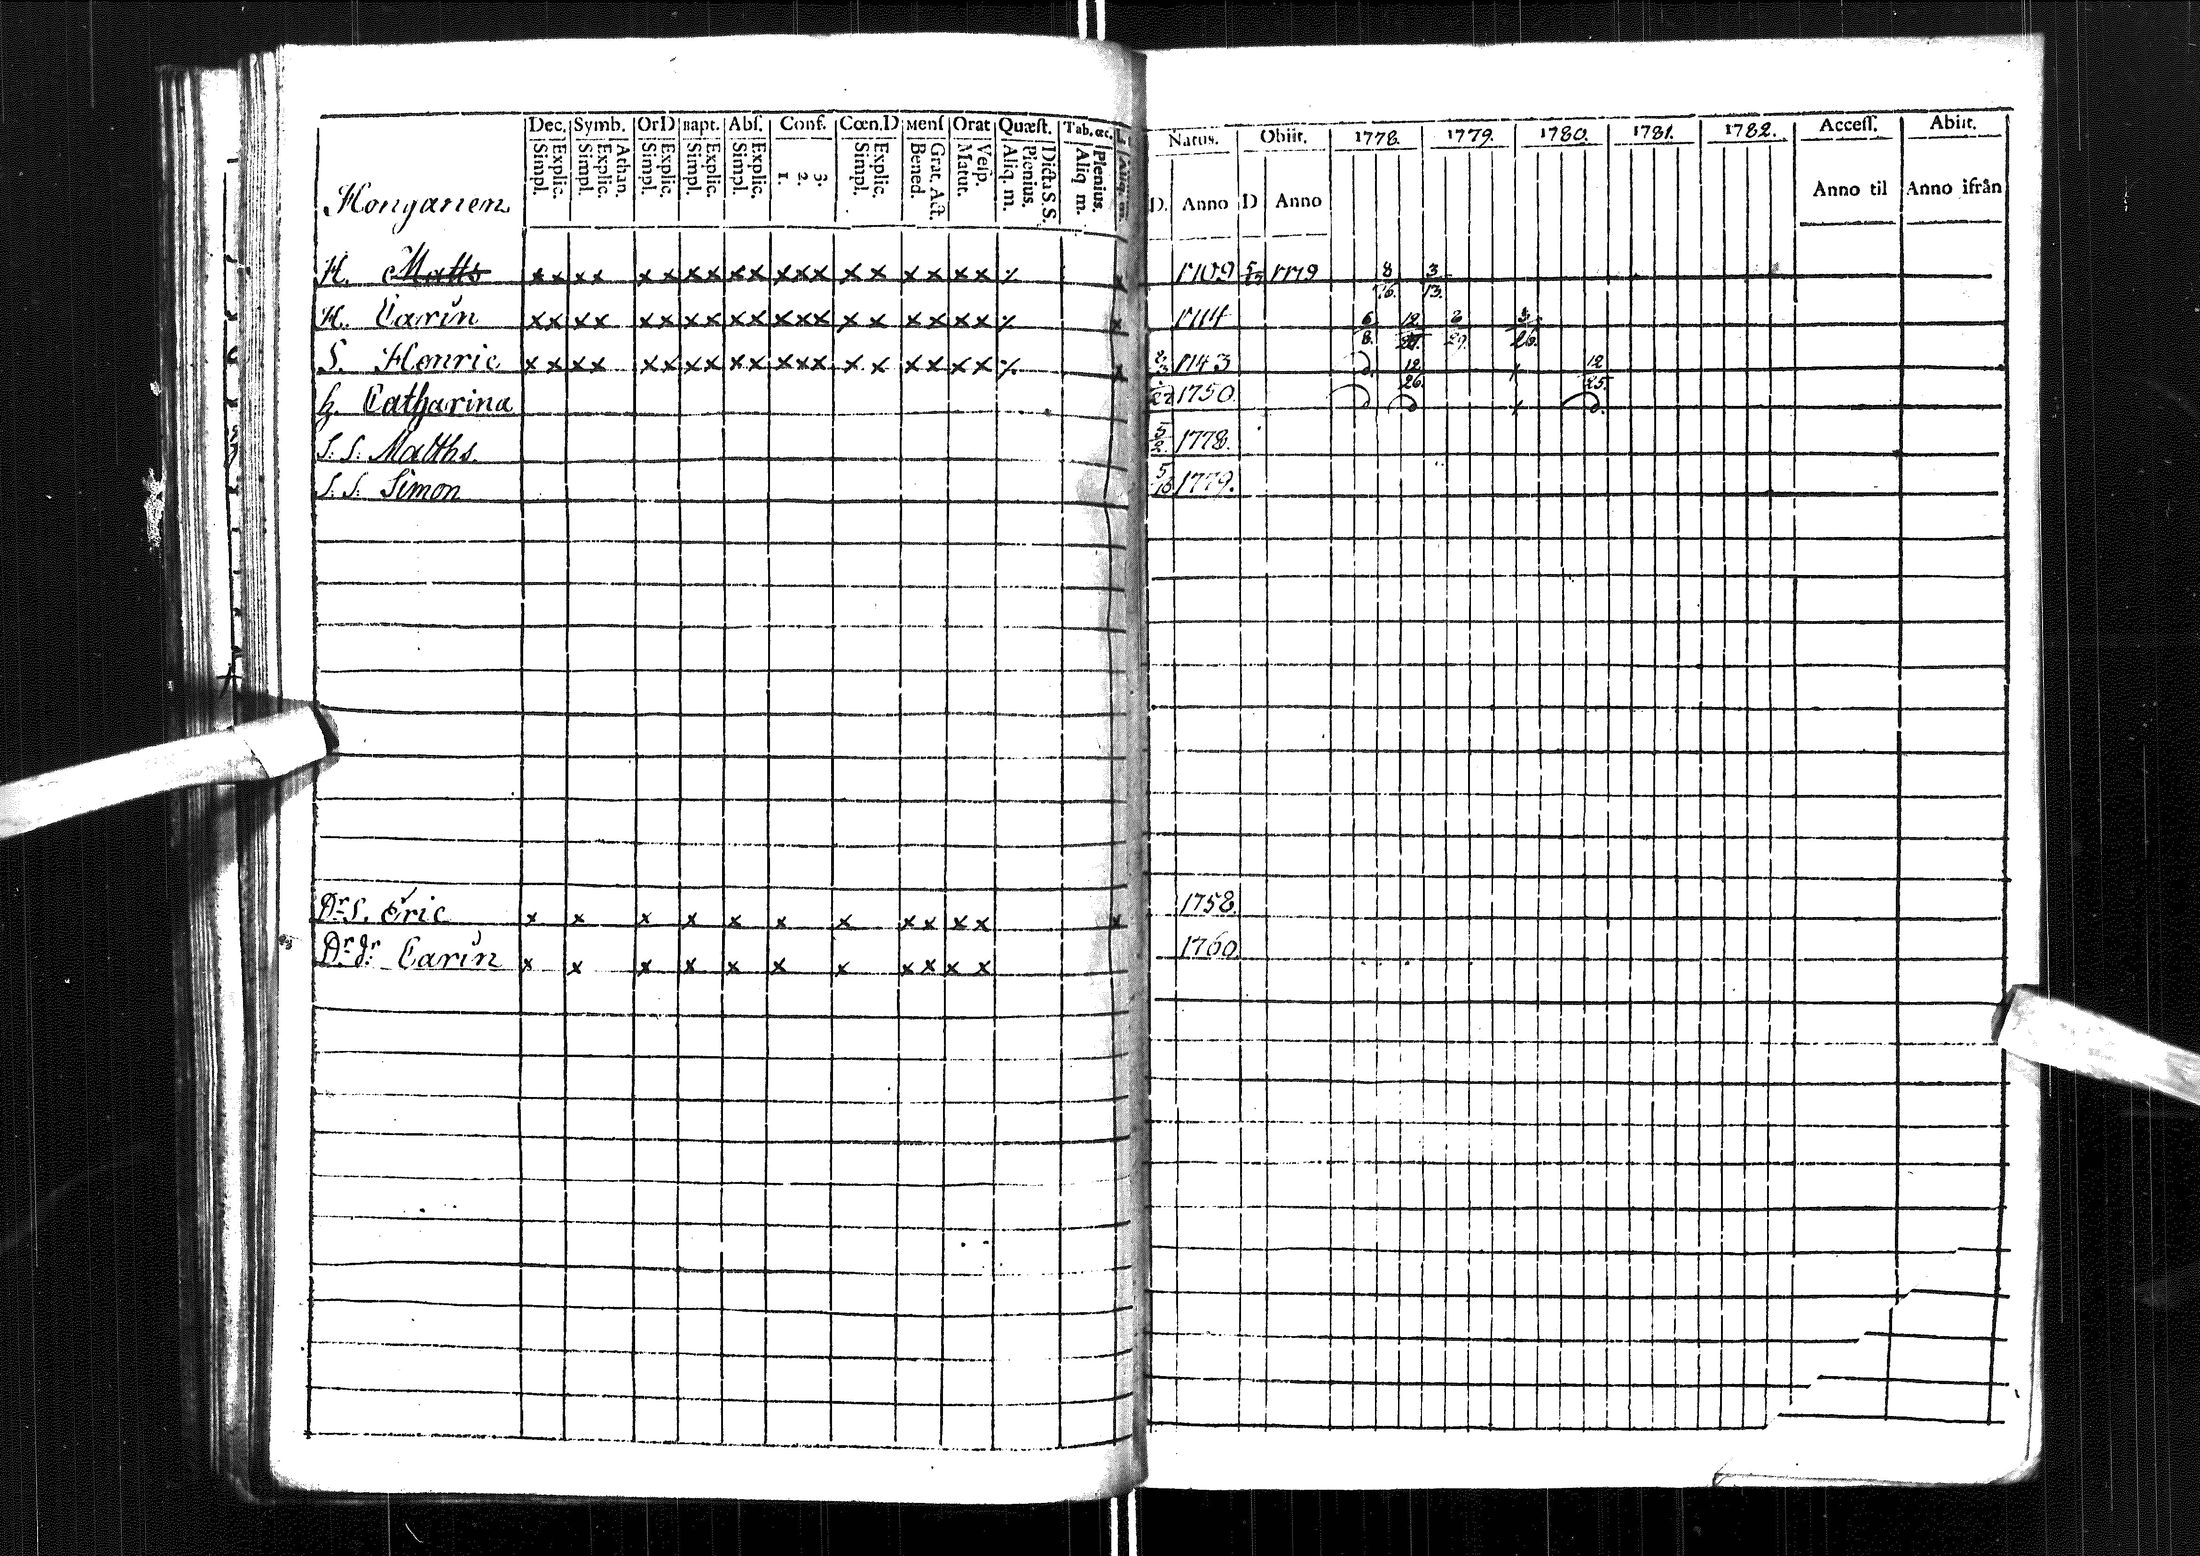 Dec. Symb. OrD Bapt. Abs. Conf. Cœn.D Mens Orat Quæst. Tab. œc.
Simpl. Explic. Simpl. Explic. Athan. Simpl. Explic. Simpl. Explic. Simpl. Explic. 1. 2. 3. Simpl. Explic. Bened. Grat. Act. Matut. Vesp. Aliq. m. Plenius. Dicta S.S. Aliq m. Plenius.
Natus. Obiit. 1778. 1779. 1780. 1781. 1782. Access. Abiit.
D. Anno D Anno Anno til Anno ifrån
Honganen
H. Matts x x x x x x x x x x x x x x x x x x x 1709 1779 8 3
13.
H. Carin x x x x x x x x x x x x x x x x x x x 1714 6/8. 12 3
S. Henric x x x x x x x x x x x x x x x x x x x 1743 12/26 12/25.
h. Catharina 1750.
S. S. Matths 5/2. 1778.
S. S. Simon 5/16 1779.
Dr. S. Eric x x x x x x x x x x x x 1758.
Dr. dr Carin x x x x x x x x x x x 1760.